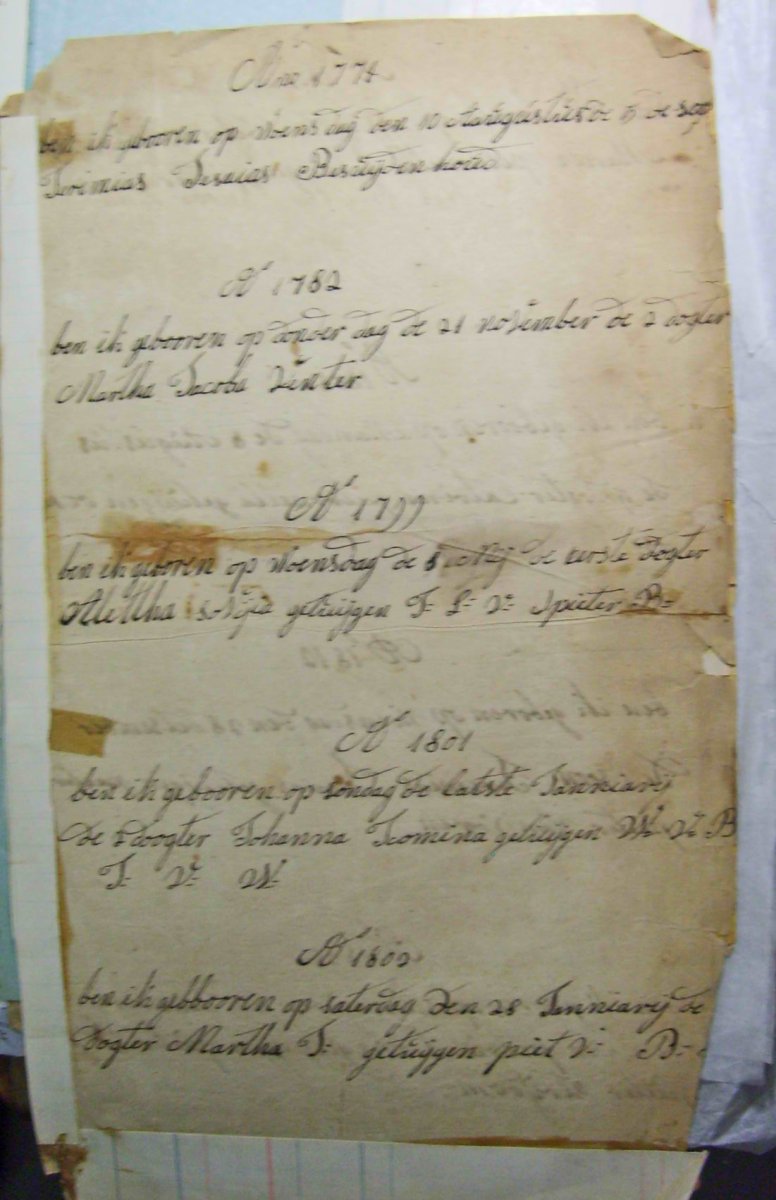 Ano 1778
ben ik gebooren op woensdag den 10 Aaugustus de
Jeremias Jesaias Besuijdenhoud
A° 1782
ben ik gebooren op donder dag de 21 november de 2 dogter
Martha Jacoba Venter
A° 1799
ben ik geboren op woensdag de 8 Meij de eerste dogter
Alettha sofija getuijgen J= L= V= pieter B=
A° 1801
ben ik gebooren op sondag de latste Janniarij
de doogter Johanna Jcomina getuijgen W= V= B
J= V= W=
A° 1802
ben ik gebbooren op saterdag den 28 Janniarij de
dogter Martha J= getuijgen piet V= B=